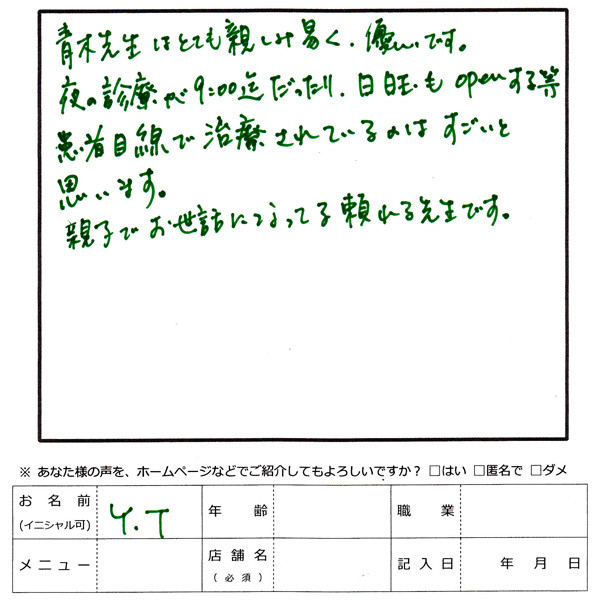 青木先生はとても親しみ易く、優しいです。
夜の診療が9:00迄だったり、日曜もopenする等
患者目線で治療されているのはすごいと
思います。
親子でお世話になってる頼れる先生です。
※ あなた様の声を、ホームページなどでご紹介してもよろしいですか? □はい □匿名で □ダメ
お名前 Y.T 年齢 職業
(イニシャル可)
メニュー 店舗名 記入日 年 月 日
(必須)